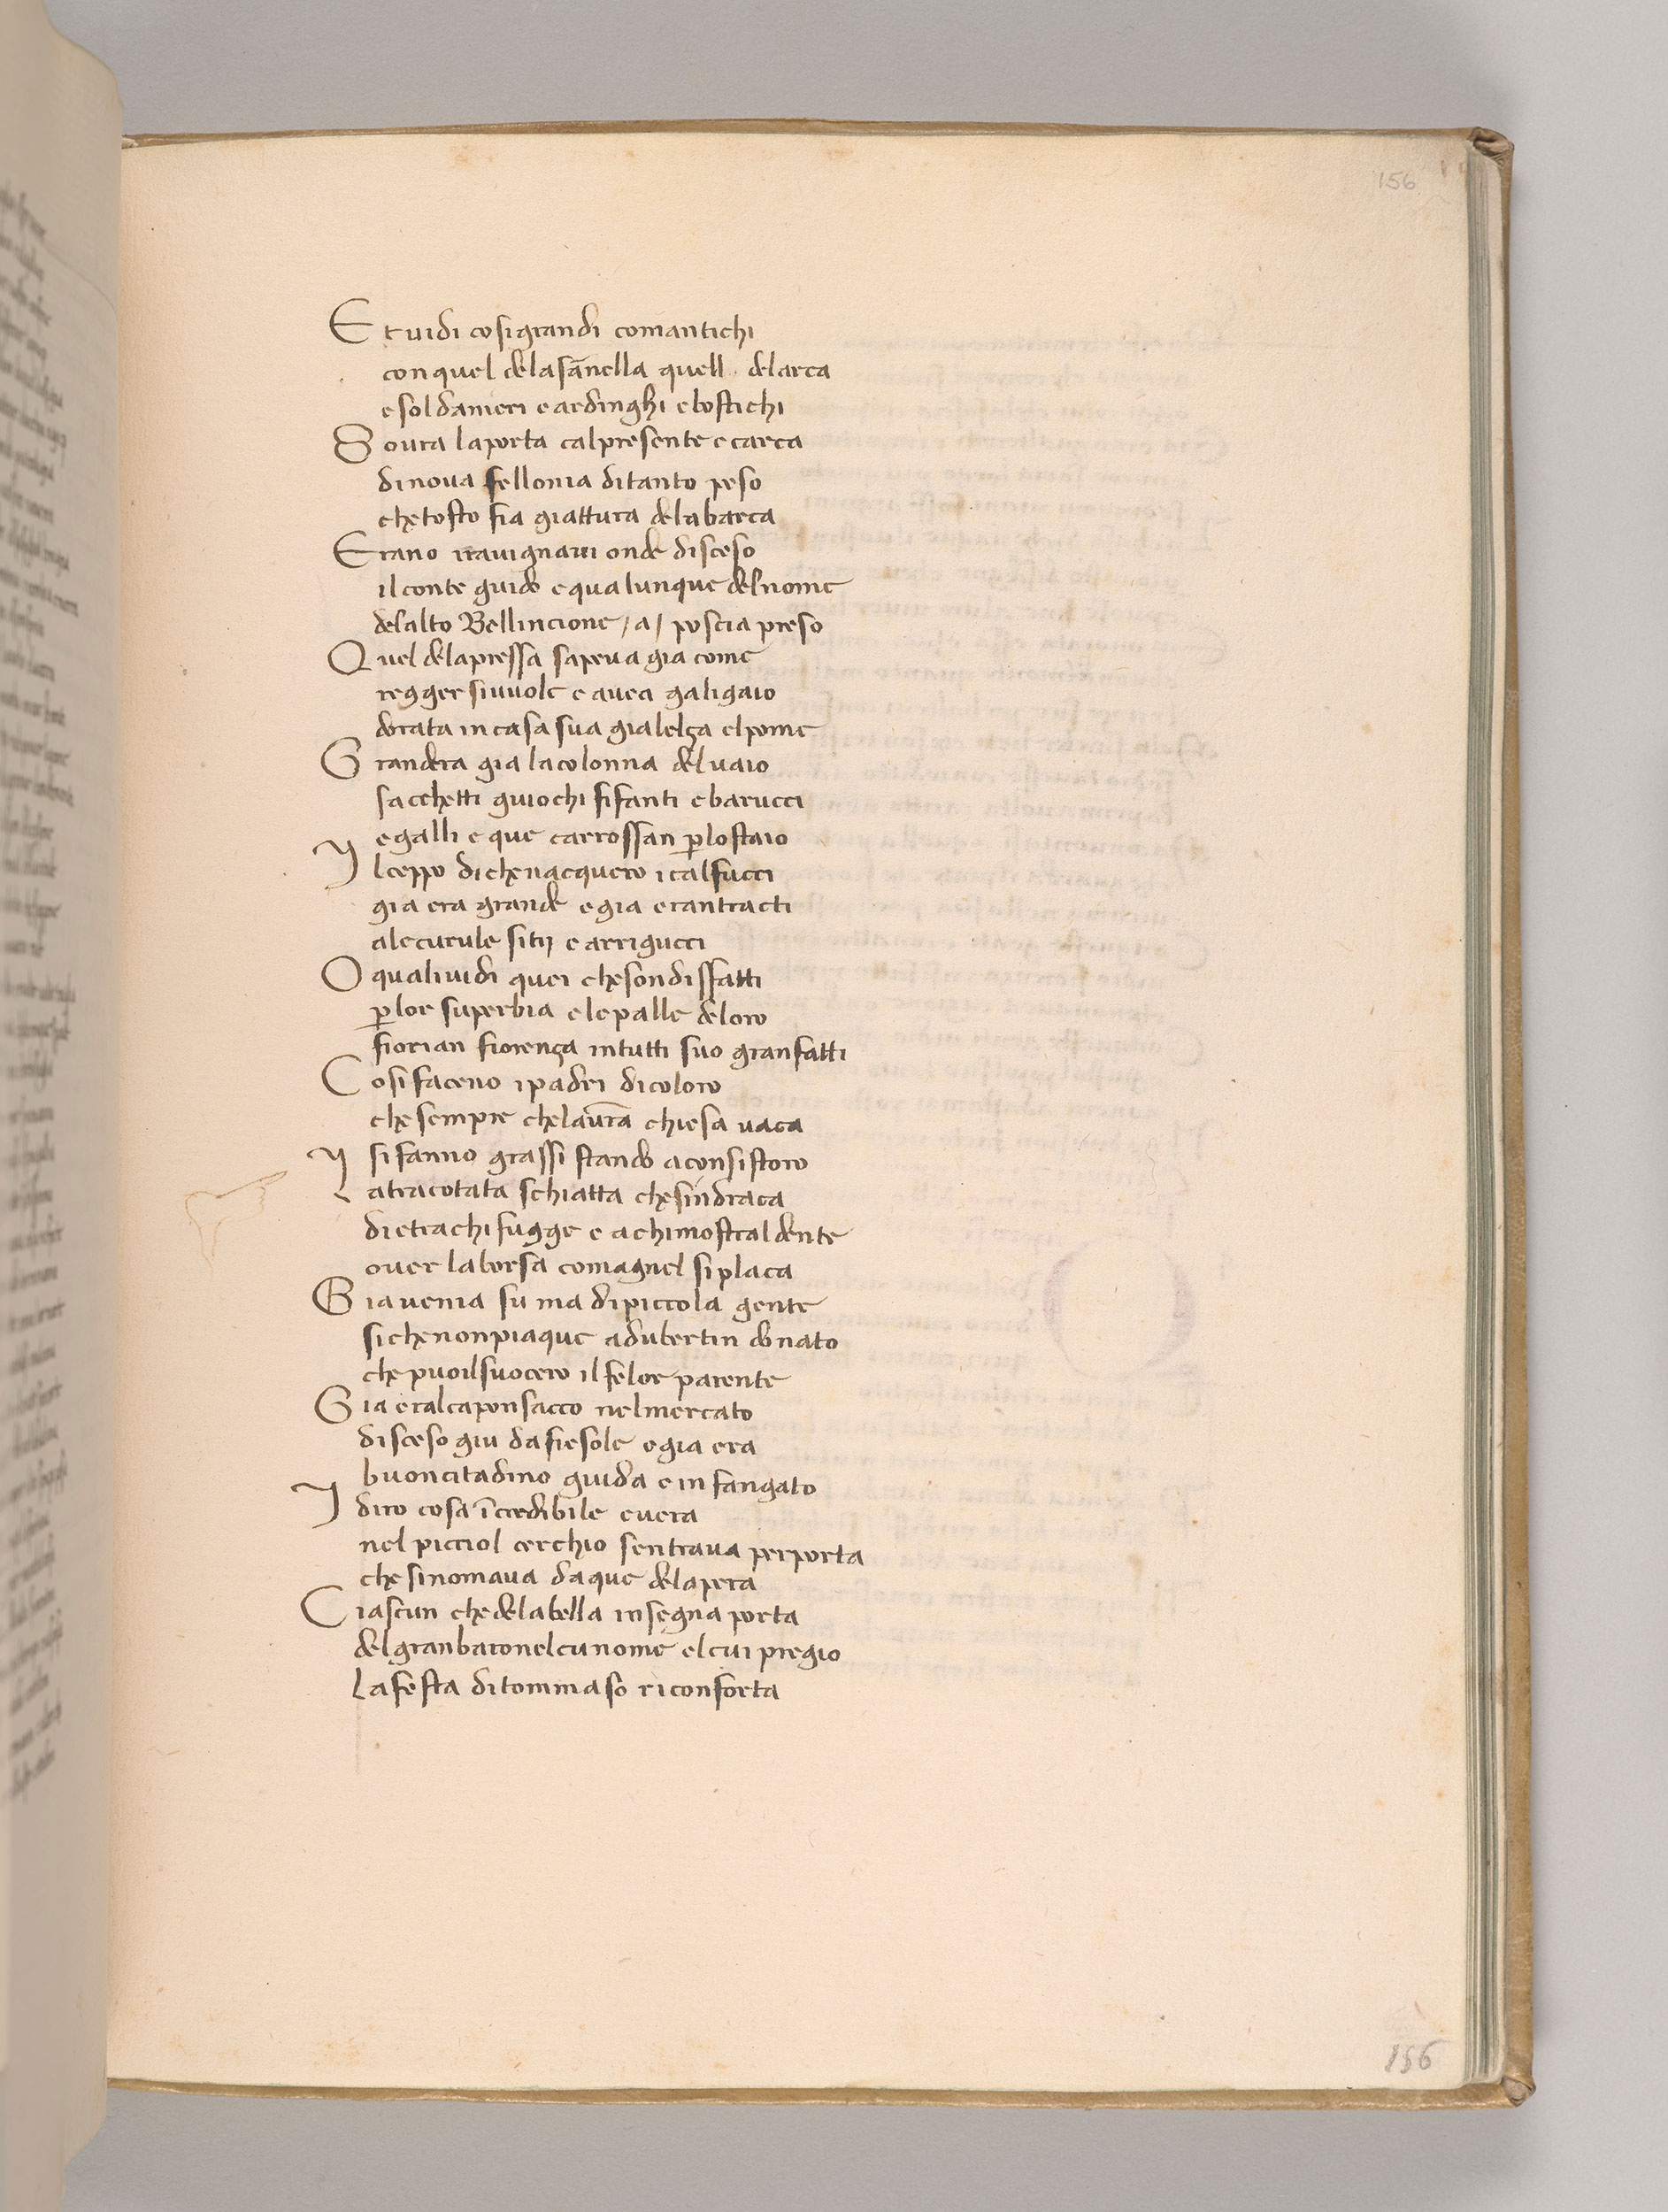 156
Et uidi cosi grandi com antichi
con quel dela sānella quell delarca
e soldanieri e ardinghi e bostichi
Soura laporta cal presente e carca
dinoua fellonia ditanto peso
che tosto fia giattura dela barca
Erano irauignani onde disceso
il conte guido e qualunque del nome
delalto Bellincione /a/ poscia preso
Quel delapressa sapeua gia come
regger siuuole e auea galigaio
dorata incasa sua gia lelça elpome
Grandera gia lacolonna deluaio
sacchetti guiochi fifanti e barucci
e galli e que carrossan ꝑlostaio
Ylceppo diche nacquero i calfucci
gia era grande e gia erantracti
ale curule sitij e arrigucci
O quali uidi quei che son disfatti
ꝑlor superbia e le palle deloro
fiorian fiorença intutti suo granfatti
Cosi faceno i padri dicoloro
che sempre chelaur̄a chiesa uaca
si fanno grassi stando aconsistoro
Latracotata schiatta chesindraca
dietrachi fugge e achi mostraldente
ouer laborsa comagnel siplaca
Gia uenia su ma dipiccola gente
siche nonpiaque adubertin donato
che puoilsuocero il fe lor parente
Gia eralcaponsacco nelmercato
disceso giu dafiesole e gia era
buon citadino guida e infangato
Y diro cosa īcredibile e uera
nel picciol cerchio sentraua perporta
che sinomaua daque delapera
Ciascun che delabella insegna porta
delgranbaronelcu nome elcui pregio
lafesta ditommaso riconforta
156